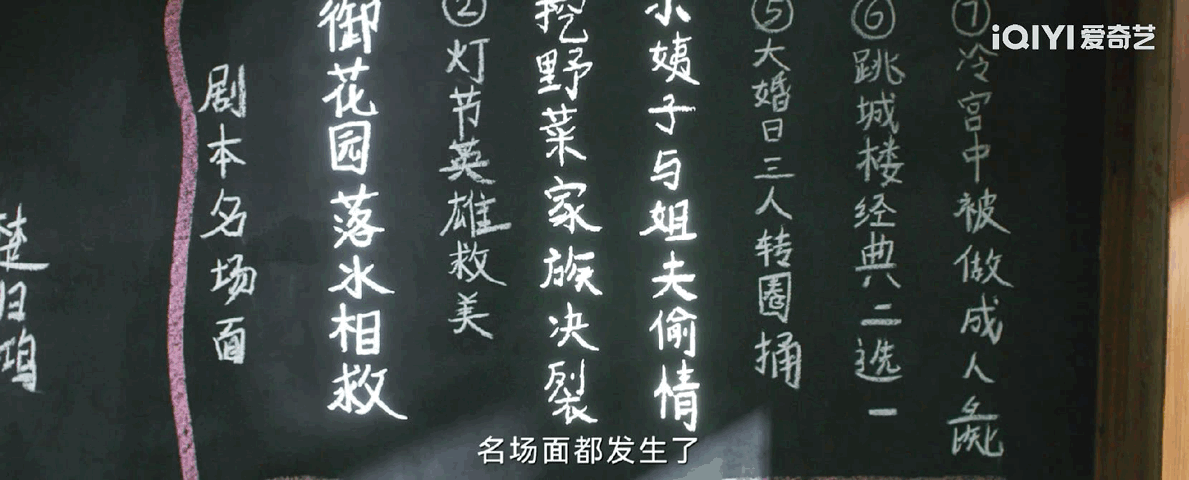 iQIYI 爱奇艺
剧本名场面
御花园落水相救
②灯节英雄救美
挖野菜家族决裂
小姨子与姐夫偷情
⑤大婚日三人转圈捅
⑥跳城楼经典二选一
⑦冷宫中被做成人彘
楚归鸿
名场面都发生了